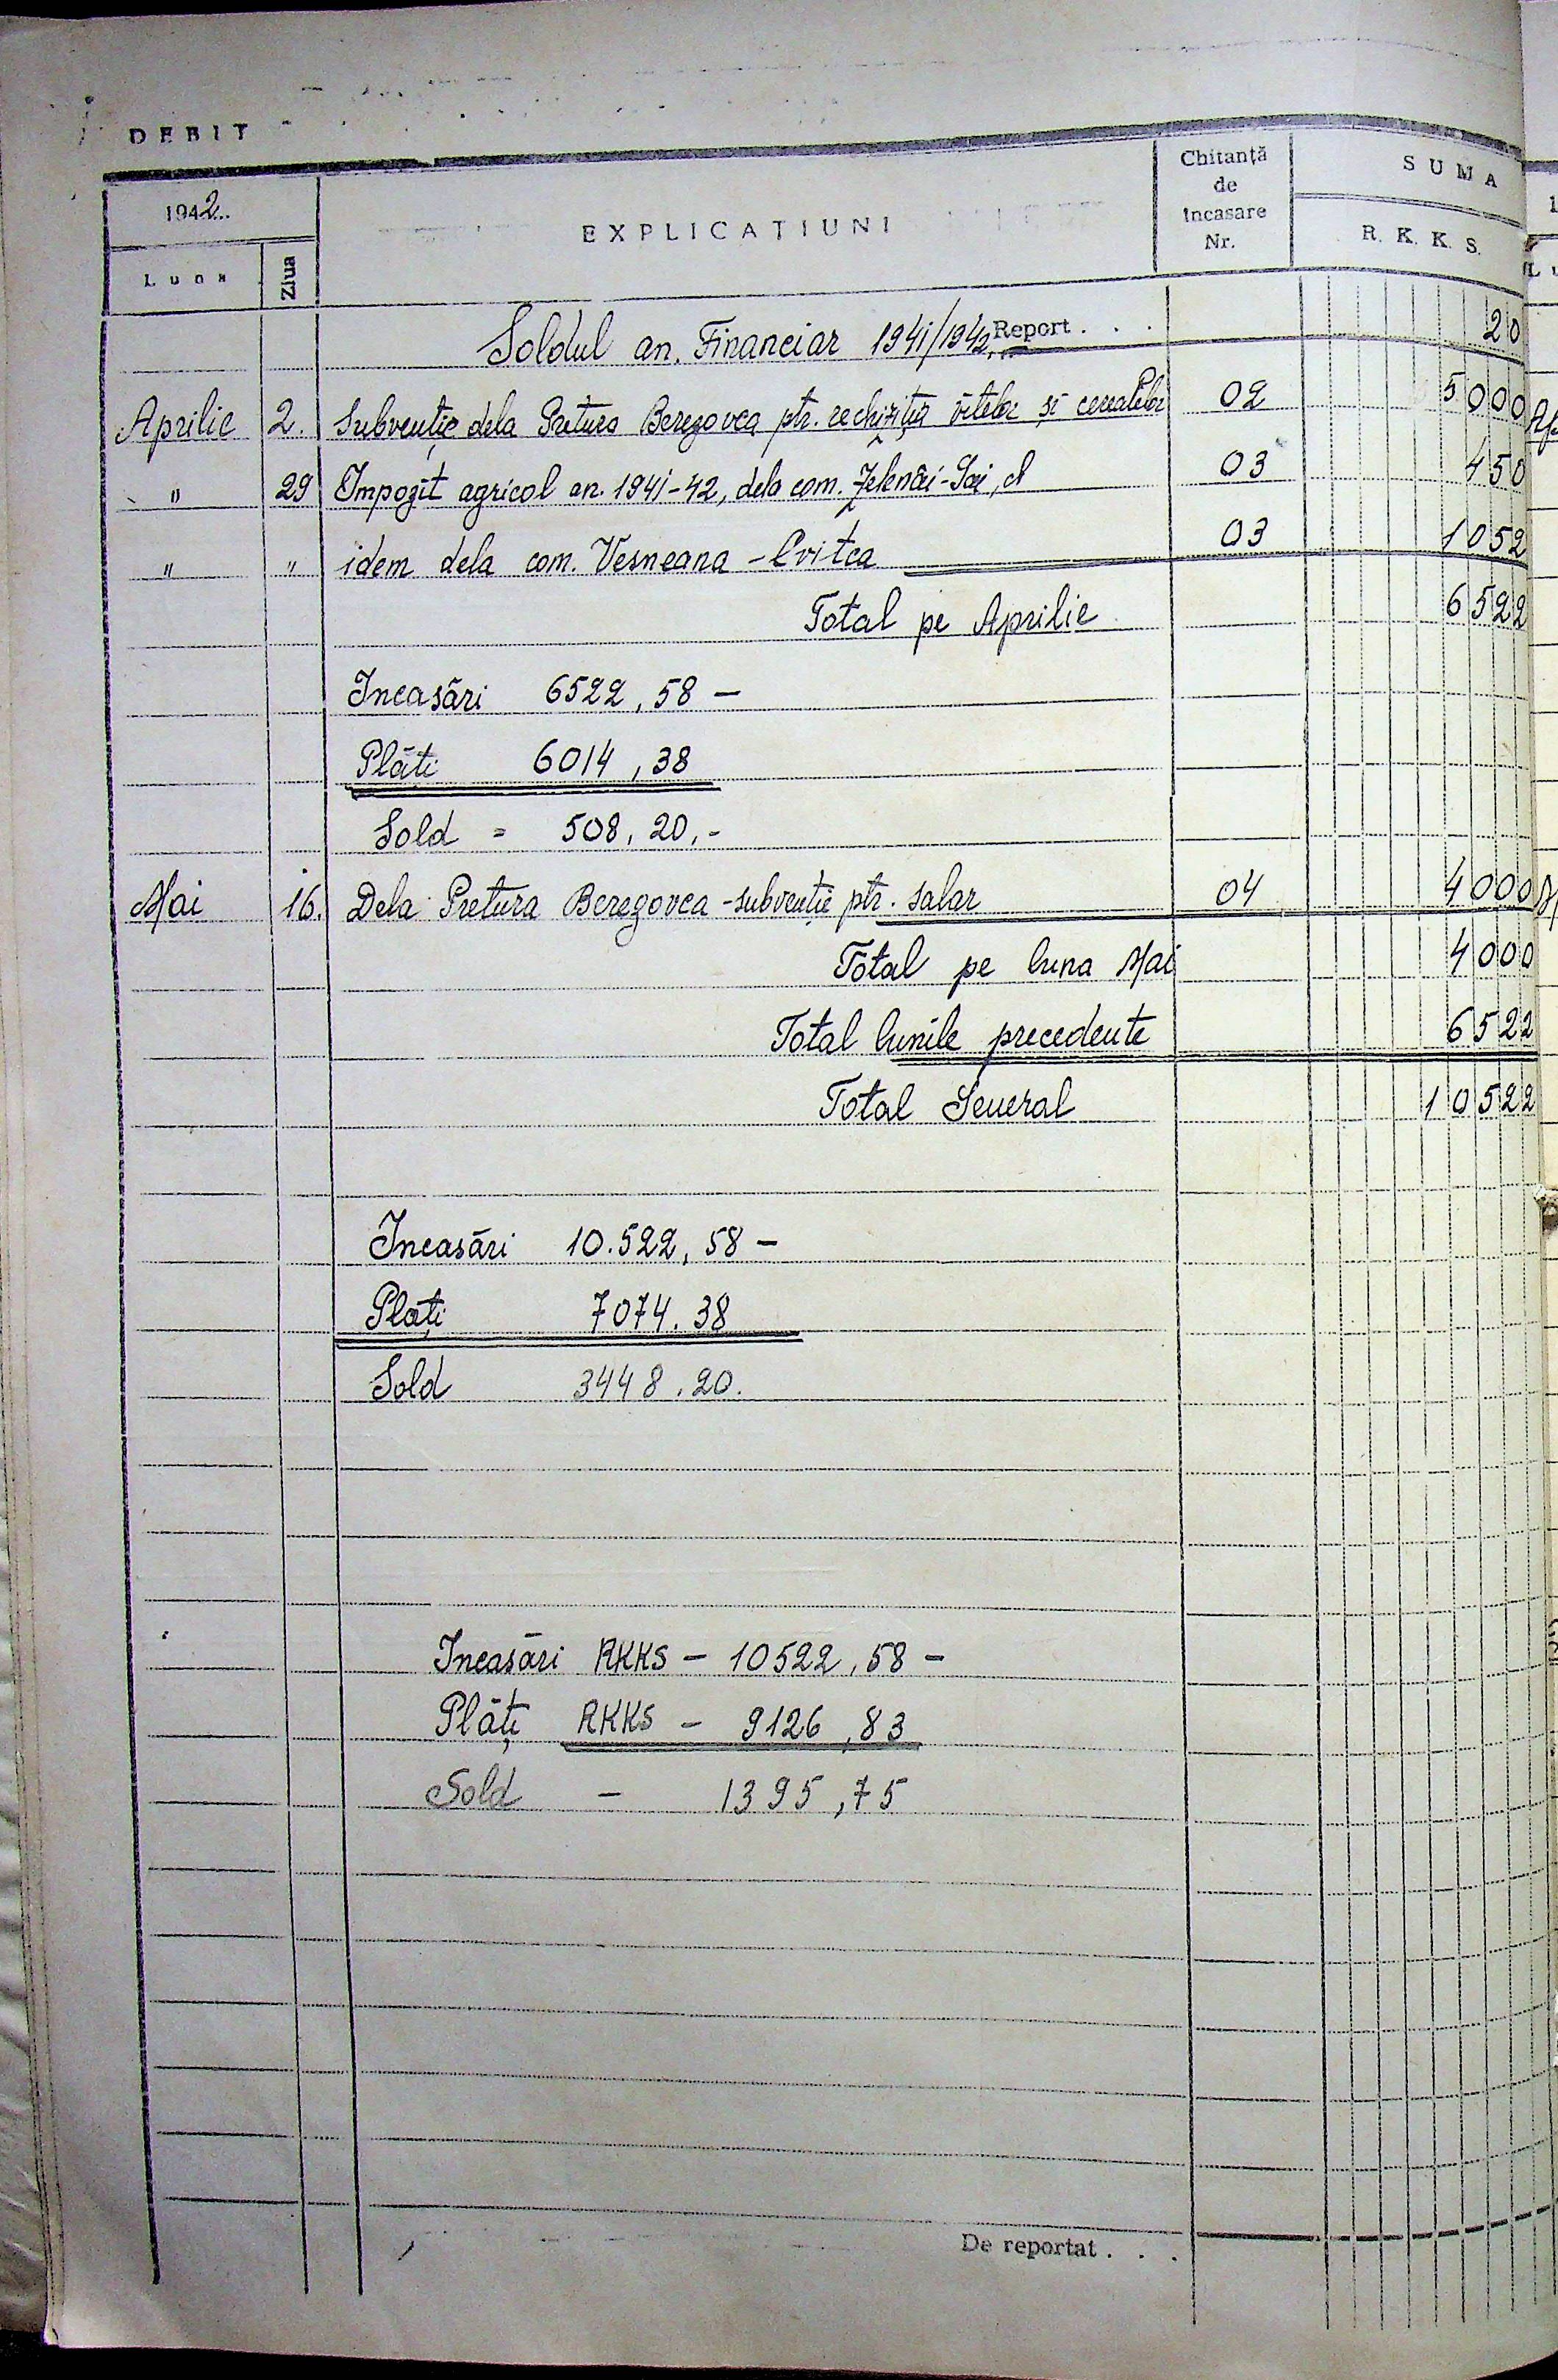 DEBIT
1942..
Luna
Ziua
EXPLICAȚIUNI
Chitanță
de
incasare
Nr.
SUMA
R. K. K. S.
Soldul an. Financiar 1941/1942, Report . . . 20
Aprilie 2. Subvenție dela Pretura Beregovca ptr. rechiziția vitelor și cerealelor 02 5000
" 29 Impozit agricol an. 1941-42, dela com. 03 450
" " idem dela com. Vesneana - Cvitca 03 1052
Total pe Aprilie 6522
Incasări 6522,58 -
Plăti 6014,38
Sold = 508,20,-
Mai 16. Dela Pretura Beregovca - subvenție ptr. salar 04 4000
Total pe luna Mai 4000
Total lunile precedente 6522
Total General 10522
Incasări 10.522,58 -
Plăți 7074.38
Sold 3448.20.
Incasări RKKS - 10522,58 -
Plăți RKKS - 9126,83
Sold - 1395,75
De reportat . . .